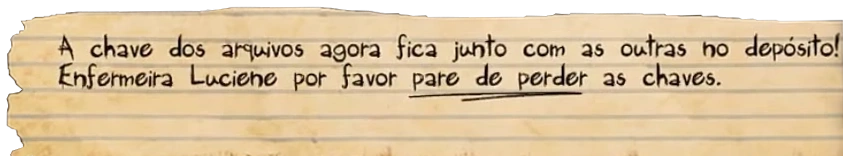 A chave dos arquivos agora fica junto com as outras no depósito!
Enfermeira Luciene por favor pare de perder as chaves.